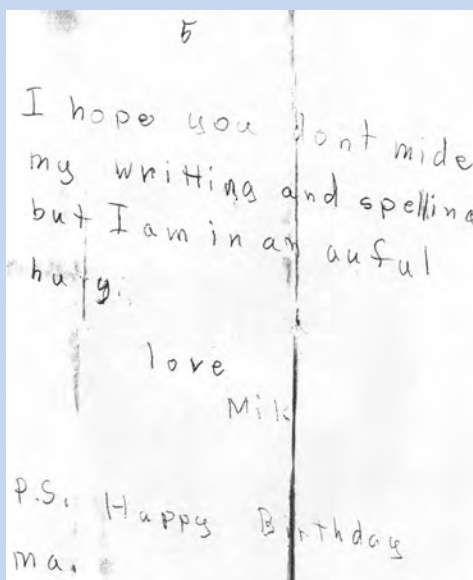 5
I hope you dont mide
my writting and spelling
but I am in an auful
hury.
love
Mik
P.S. Happy Birthday
ma.